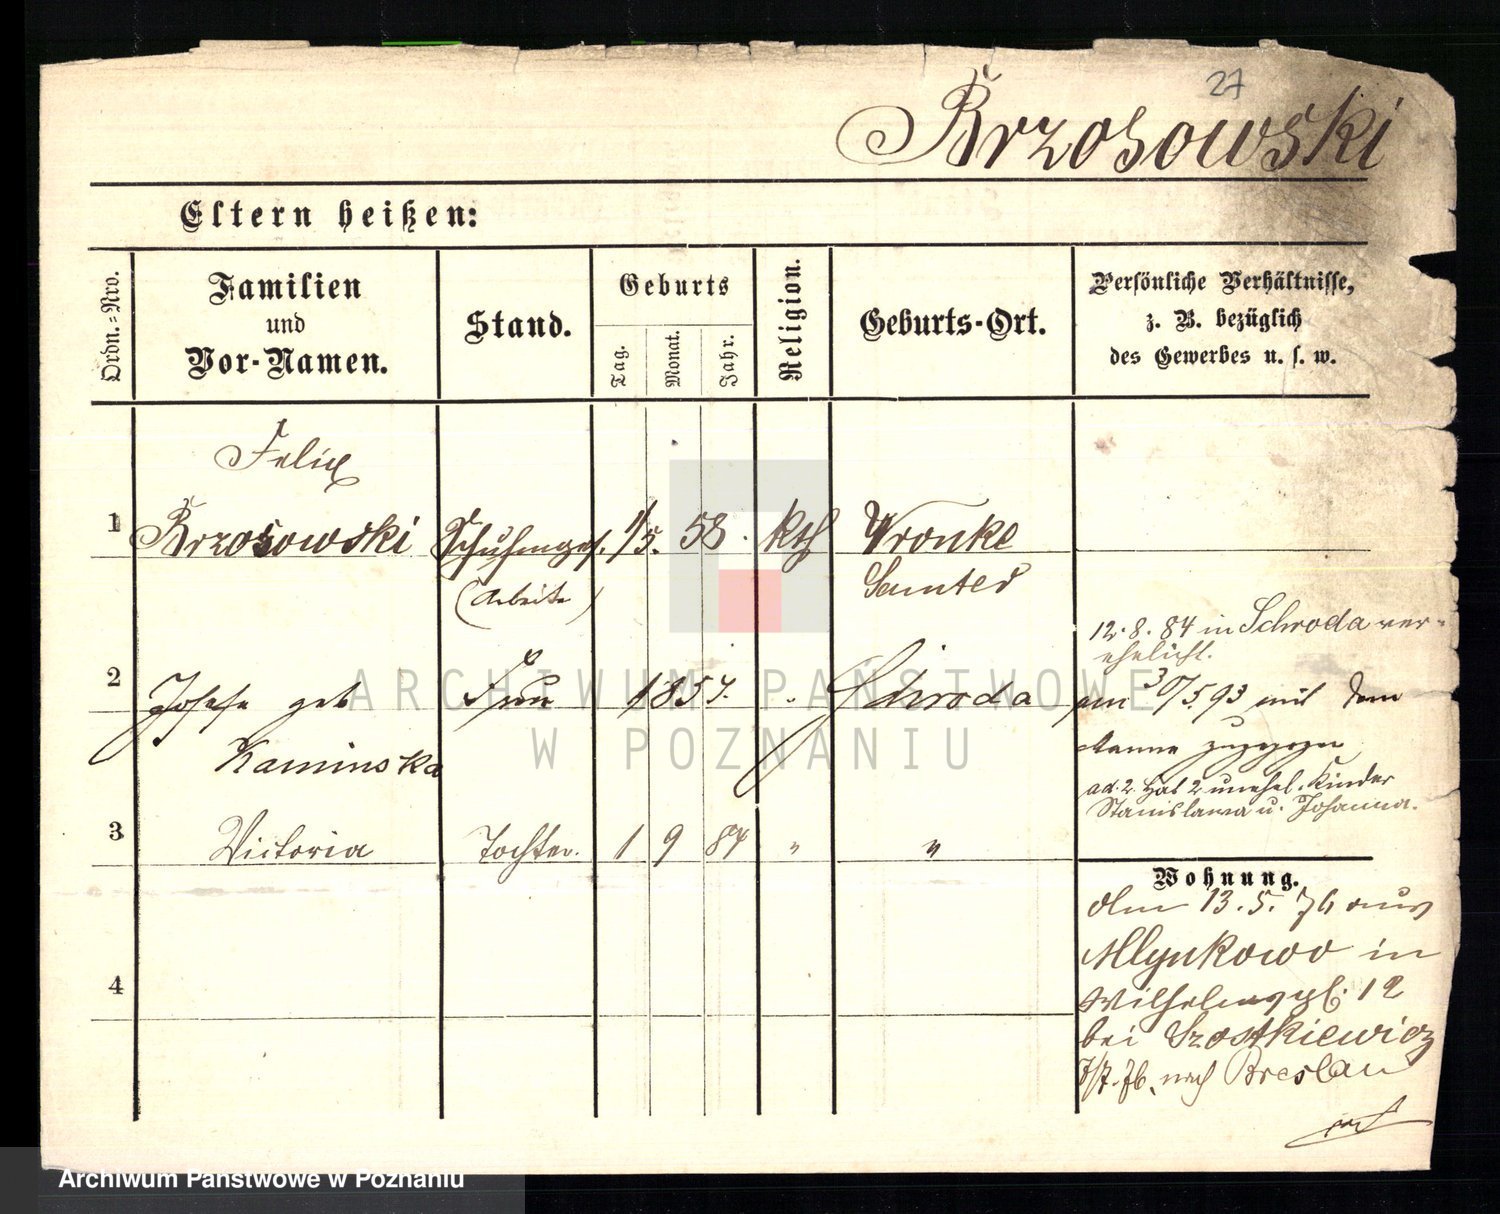 27
Brzosowski
Eltern heißen:
Ordn.=Nro.
Familien
und
Vor-Namen.
Stand.
Geburts
Tag.
Monat.
Jahr.
Religion.
Geburts-Ort.
Persönliche Verhältnisse,
z. B. bezüglich
des Gewerbes u. s. w.
Felix
1 Brzosowski Schuhmges. 1/5. 58. kth Wronke
(Arbeiter) Samter
12. 8. 84 in Schroda ver-
ehelicht.
2 Josefa geb Frau 1857. " Schroda
Kaminska
am 30/5. 93 mit dem
Manne zugezogen
ad. 2. Hat 2 unehel. Kinder
Stanislawa u. Johanna.
3 Victoria Tochter. 1 9 84 " "
Wohnung.
Am 13. 5. 76 aus
Mlynkowo in
Wilhelmspl. 12
bei Szostkiewicz
7/7. 76. nach Breslau
4
ARCHIWUM PAŃSTWOWE
W POZNANIU
Archiwum Państwowe w Poznaniu